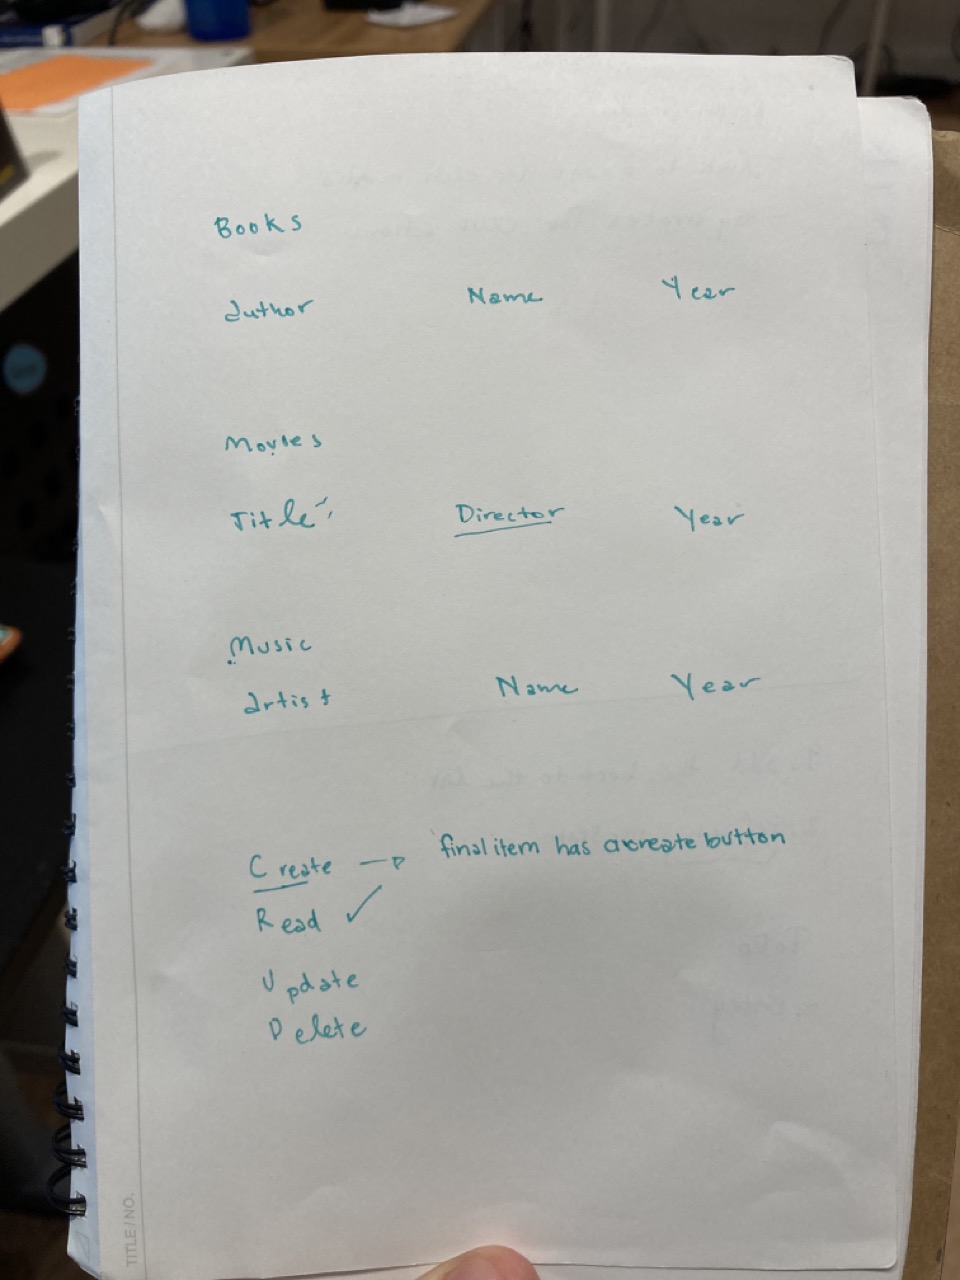 Books
Author Name Year
Movies
Title Director Year
Music
Artist Name Year
Create → final item has a create button
Read ✓
Update
Delete
TITLE / NO.